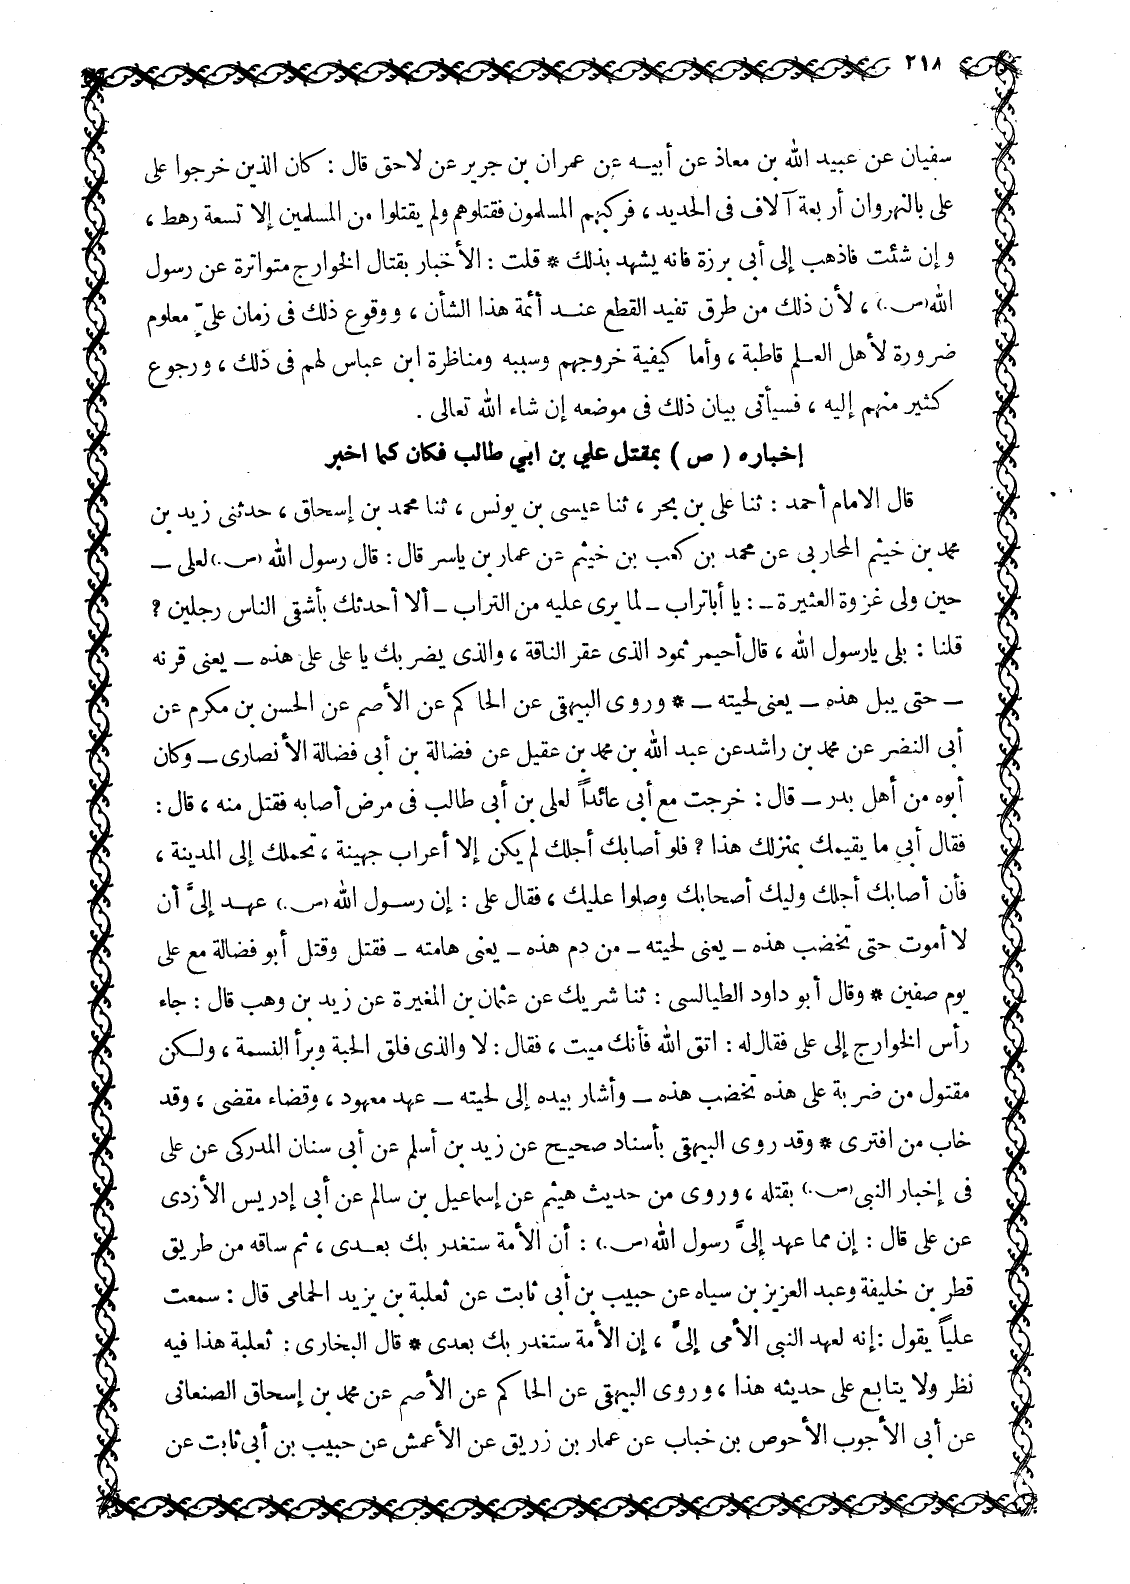 ٢١٨
سفيان عن عبيد الله بن معاذ عن أبيه عن عمران بن جرير عن لاحق قال : كان الذين خرجوا على
على بالنهروان أربعة آلاف فى الحديد ، فركبهم المسلمون فقتلوهم ولم يقتلوا من المسلمين إلا تسعة رهط ،
و إن شئت فاذهب إلى أبى برزة فانه يشهد بذلك * قلت : الأخبار بقتال الخوارج متواترة عن رسول
الله (ص.) ، لأن ذلك من طرق تفيد القطع عند أئمة هذا الشأن ، ووقوع ذلك فى زمان علىٍّ معلوم
ضرورة لأهل العلم قاطبة ، وأما كيفية خروجهم وسببه ومناظرة ابن عباس لهم فى ذلك ، ورجوع
كثير منهم إليه ، فسيأتى بيان ذلك فى موضعه إن شاء الله تعالى .
إخباره ( ص ) بمقتل علي بن ابي طالب فكان كما اخبر
قال الامام أحمد : ثنا على بن بحر ، ثنا عيسى بن يونس ، ثنا محمد بن إسحاق ، حدثنى زيد بن
محمد بن خيثم المحاربى عن محمد بن كعب بن خيثم عن عمار بن ياسر قال : قال رسول الله (ص.) لعلى ــ
حين ولى غزوة العثيرة ــ : يا أباتراب ــ لما يرى عليه من التراب ــ ألا أحدثك بأشقى الناس رجلين ؟
قلنا : بلى يارسول الله ، قال أحيمر ثمود الذى عقر الناقة ، والذى يضربك يا على على هذه ــ يعنى قرنه
ــ حتى يبل هذه ــ يعنى لحيته ــ * وروى البيهقى عن الحاكم عن الأصم عن الحسن بن مكرم عن
أبى النضر عن محمد بن راشد عن عبد الله بن محمد بن عقيل عن فضالة بن أبى فضالة الأنصارى ــ وكان
أبوه من أهل بدر ــ قال : خرجت مع أبى عائداً لعلى بن أبى طالب فى مرض أصابه فقتل منه ، قال :
فقال أبى ما يقيمك بمنزلك هذا ؟ فلو أصابك أجلك لم يكن إلا أعراب جهينة ، تحملك إلى المدينة ،
فأن أصابك أجلك وليك أصحابك وصلوا عليك ، فقال على : إن رسول الله (ص.) عهد إلىَّ أن
لا أموت حتى تخضب هذه ــ يعنى لحيته ــ من دم هذه ــ يعنى هامته ــ فقتل وقتل أبو فضالة مع على
يوم صفين * وقال أبو داود الطيالسى : ثنا شريك عن عثمان بن المغيرة عن زيد بن وهب قال : جاء
رأس الخوارج إلى على فقال له : اتق الله فأنك ميت ، فقال : لا والذى فلق الحبة وبرأ النسمة ، ولكن
مقتول من ضربة على هذه تخضب هذه ــ وأشار بيده إلى لحيته ــ عهد معهود ، وقضاء مقضى ، وقد
خاب من افترى * وقد روى البيهقى بأسناد صحيح عن زيد بن أسلم عن أبى سنان المدركى عن على
فى إخبار النبى (ص.) بقتله ، وروى من حديث هيثم عن إسماعيل بن سالم عن أبى إدريس الأزدى
عن على قال : إن مما عهد إلىَّ رسول الله (ص.) : أن الأمة ستغدر بك بعدى ، ثم ساقه من طريق
قطر بن خليفة وعبد العزيز بن سياه عن حبيب بن أبى ثابت عن ثعلبة بن يزيد الحمامى قال : سمعت
علياً يقول : إنه لعهد النبى الأمى إلىَّ ، إن الأمة ستغدر بك بعدى * قال البخارى : ثعلبة هذا فيه
نظر ولا يتابع على حديثه هذا ، وروى البيهقى عن الحاكم عن الأصم عن محمد بن إسحاق الصنعانى
عن أبى الأجوب الأحوص بن خباب عن عمار بن زريق عن الأعمش عن حبيب بن أبى ثابت عن